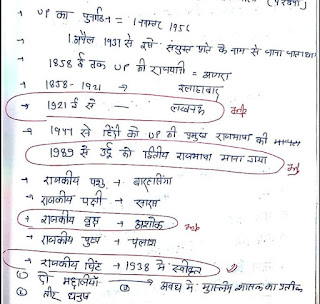 → UP का पुनर्गठन = 1 नवम्बर 1956
→ 1 अप्रैल 1937 से इसे संयुक्त प्रांत के नाम से जाना जाता था
→ 1858 ई तक UP की राजधानी = आगरा
→ 1858-1921 → इलाहाबाद
→ 1921 ई से — लखनऊ
→ 1947 से हिंदी को UP की प्रमुख राजभाषा की मान्यता
1989 से उर्दू को द्वितीय राजभाषा माना गया
→ राजकीय पशु → बारहसिंगा
→ राजकीय पक्षी → सारस
→ राजकीय वृक्ष → अशोक
→ राजकीय पुष्प → पलाश
→ राजकीय चिन्ह → 1938 में स्वीकृत
① दो मछलियाँ → अवध में मुस्लिम शासन का प्रतीक
② तीर धनुष